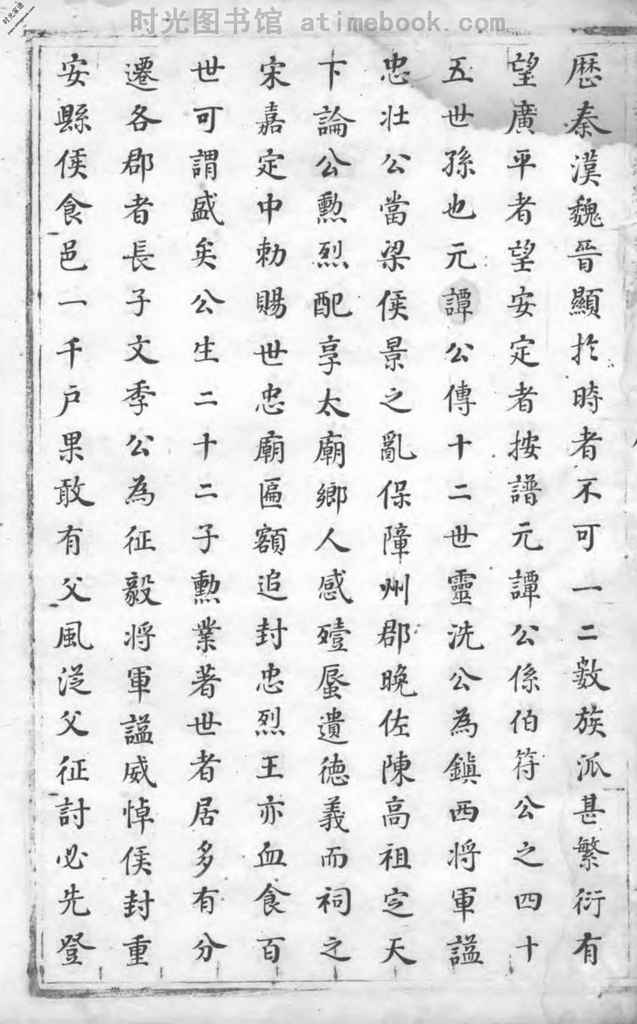 时光图书馆 atimebook.com
歷秦漢魏晉顯扵時者不可一二數族派甚繁衍有
望廣平者望安定者按譜元譚公係伯符公之四十
五世孫也元譚公傳十二世靈洗公為鎮西將軍謚
忠壯公當梁侯景之亂保障州郡晚佐陳高祖定天
下論公勲烈配享太廟鄉人感殪蜃遺德義而祠之
宋嘉定中勅賜世忠廟匾額追封忠烈王亦血食百
世可謂盛矣公生二十二子勲業著世者居多有分
遷各郡者長子文季公為征毅將軍謚威悼侯封重
安縣侯食邑一千戶果敢有父風從父征討必先登